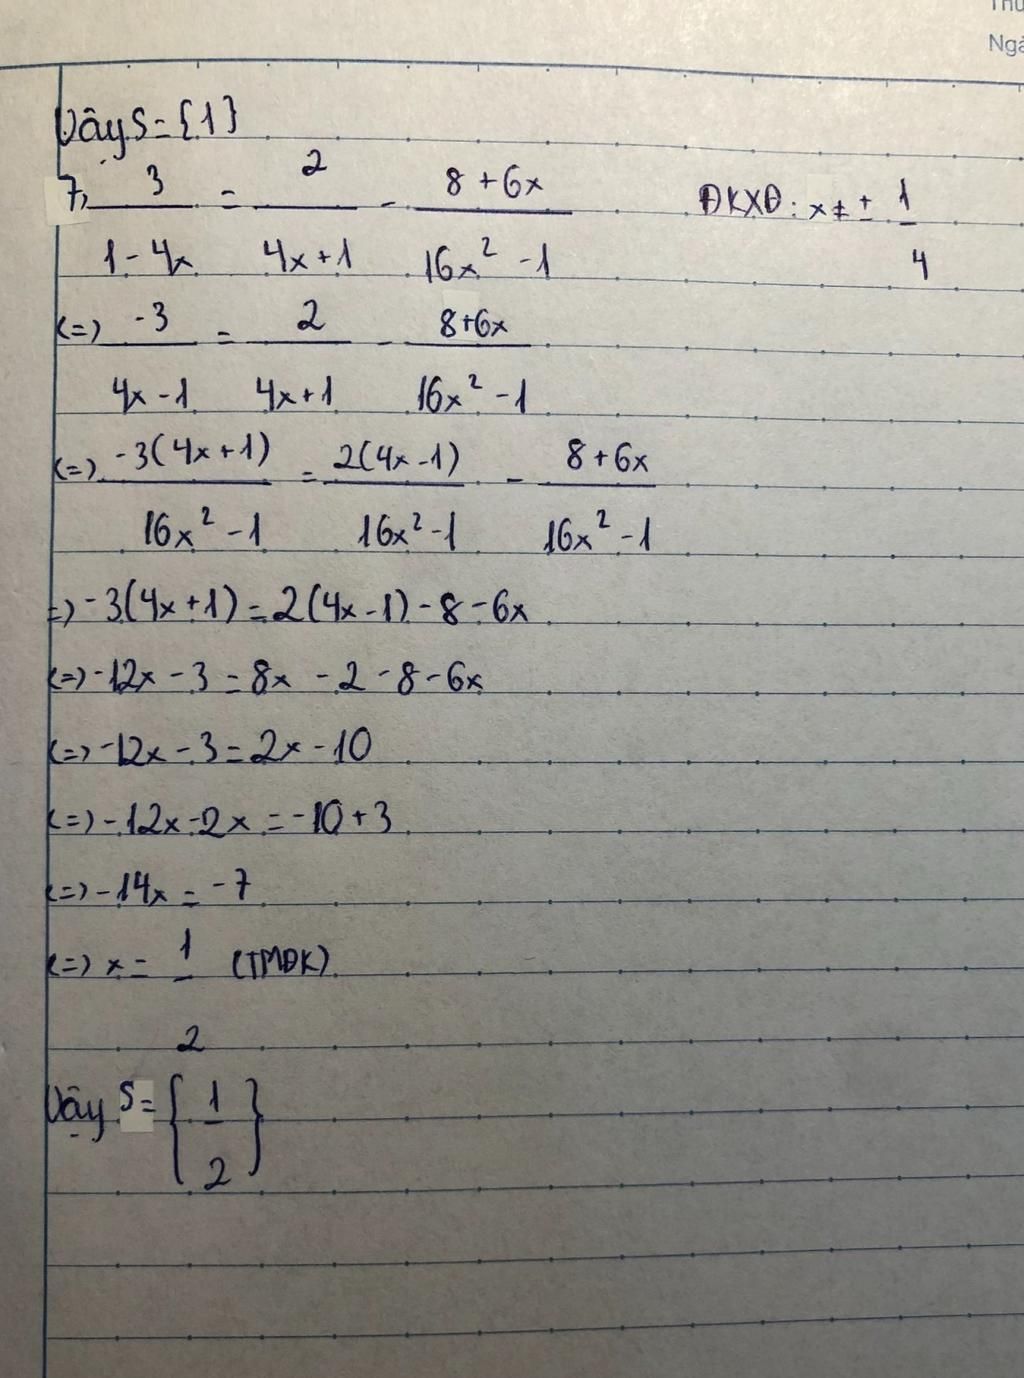 Thứ
Ngà
Vậy S = {1}
7, 3/(1 - 4x) = 2/(4x + 1) - (8 + 6x)/(16x² - 1) ĐKXĐ: x ≠ ± 1/4
<=> -3/(4x - 1) = 2/(4x + 1) - (8+6x)/(16x² - 1)
<=> -3(4x + 1)/(16x² - 1) = 2(4x - 1)/(16x² - 1) - (8 + 6x)/(16x² - 1)
=> -3(4x + 1) = 2(4x - 1) - 8 - 6x
<=> -12x - 3 = 8x - 2 - 8 - 6x
<=> -12x - 3 = 2x - 10
<=> -12x - 2x = -10 + 3
<=> -14x = -7
<=> x = 1/2 (TMĐK)
Vậy S = {1/2}